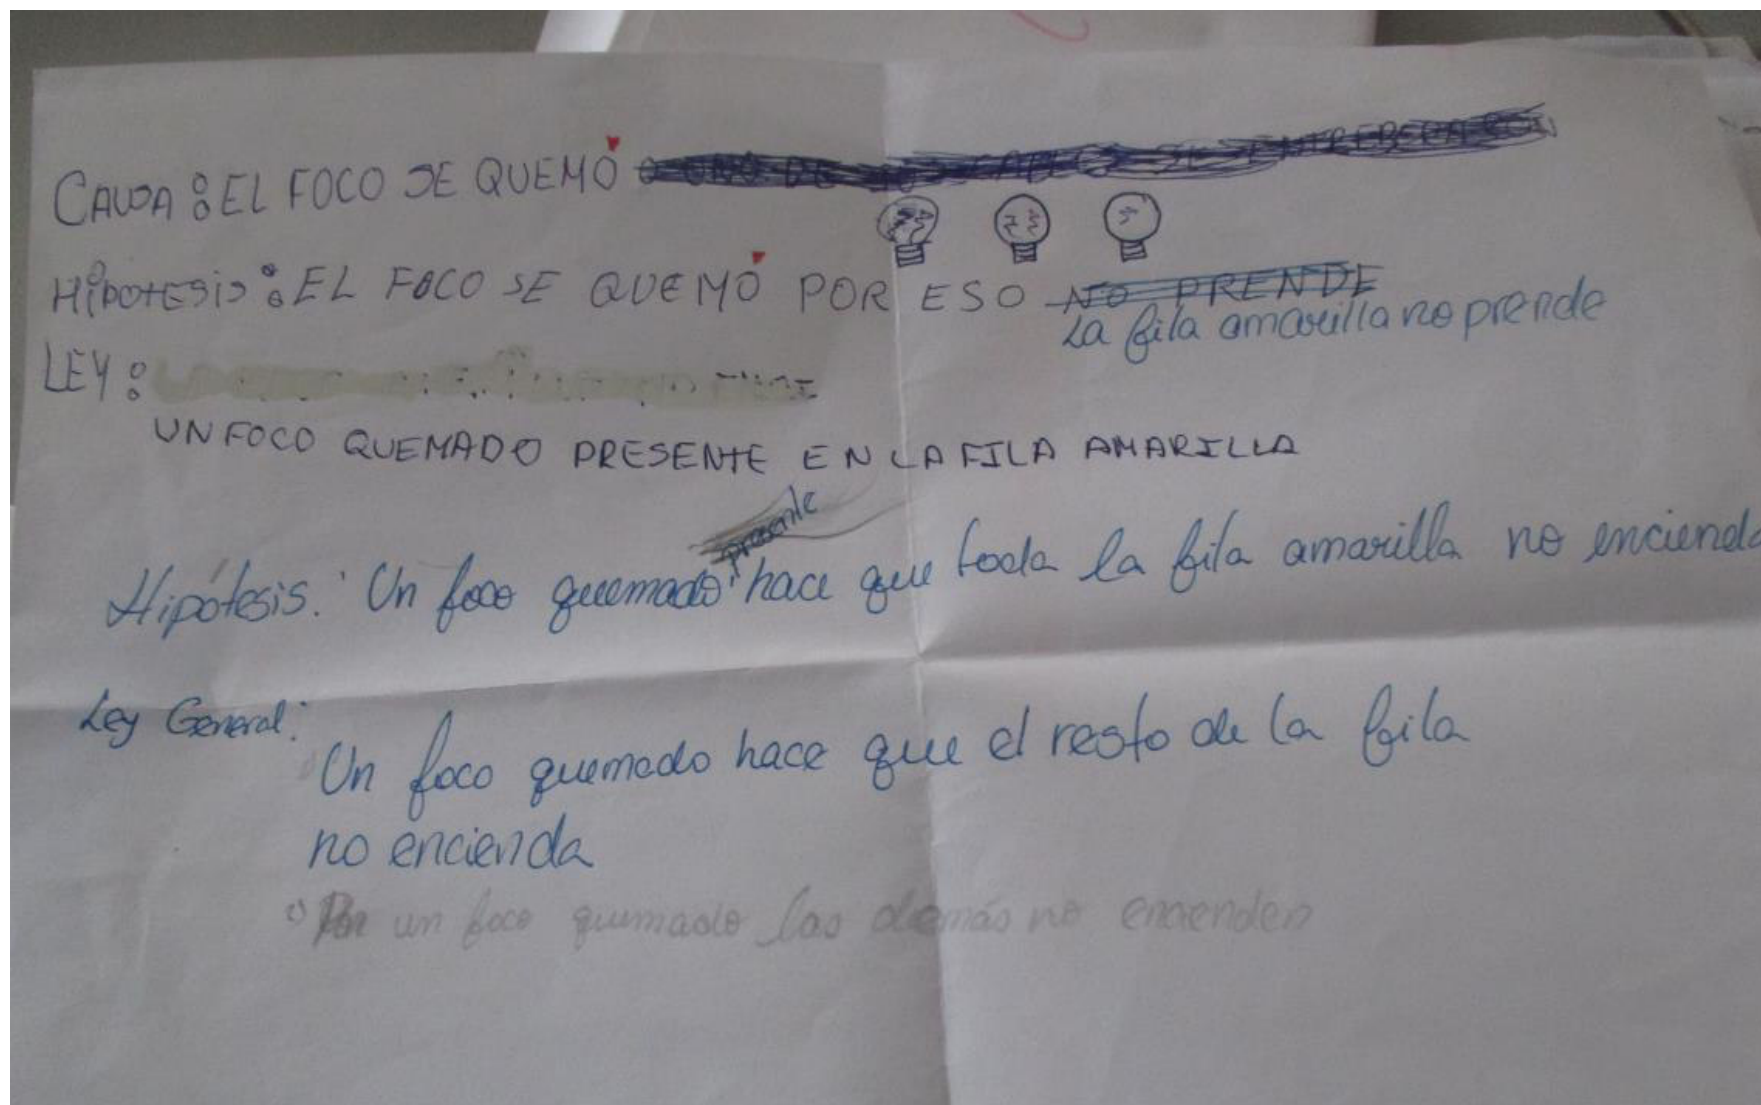 CAUSA: EL FOCO SE QUEMÓ
HipotESis: EL FOCO SE QUEMÓ POR ESO NO PRENDE
La fila amarilla no prende
LEY:
UN FOCO QUEMADO PRESENTE EN LA FILA AMARILLA
presente
Hipótesis: Un foco quemado hace que toda la fila amarilla no encienda
Ley General:
Un foco quemado hace que el resto de la fila
no encienda
Por un foco quemado las demás no encienden